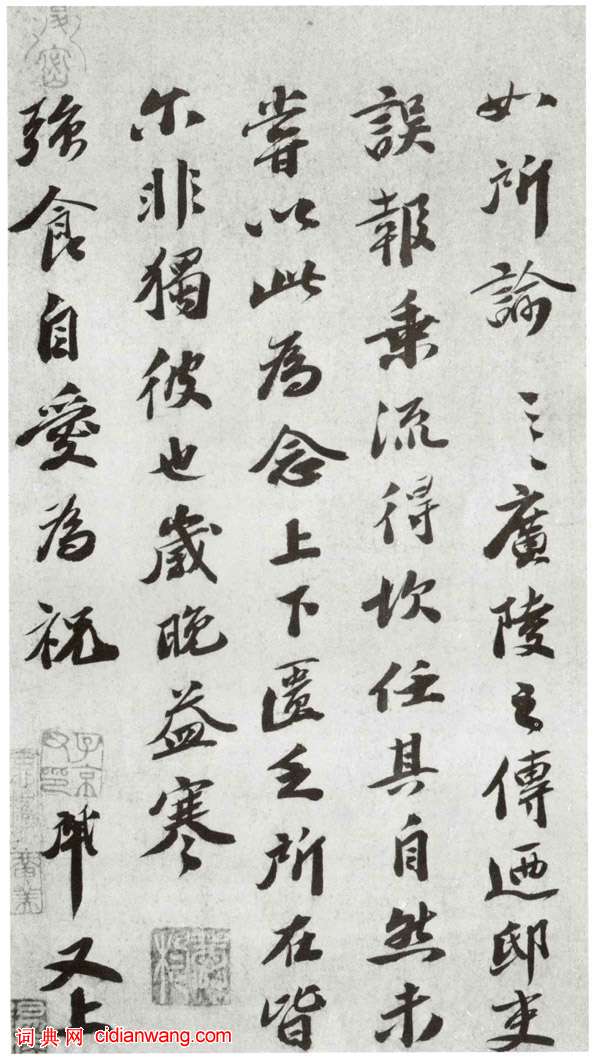 如所諭廣陵之傳迺邸吏
誤報乗流得坎任其自然未
甞以此為念上下匱乏所在皆
尓非獨彼也歲晚益寒
強食自愛為祝 軾又上
子京父印
词典网 cidianwang.com